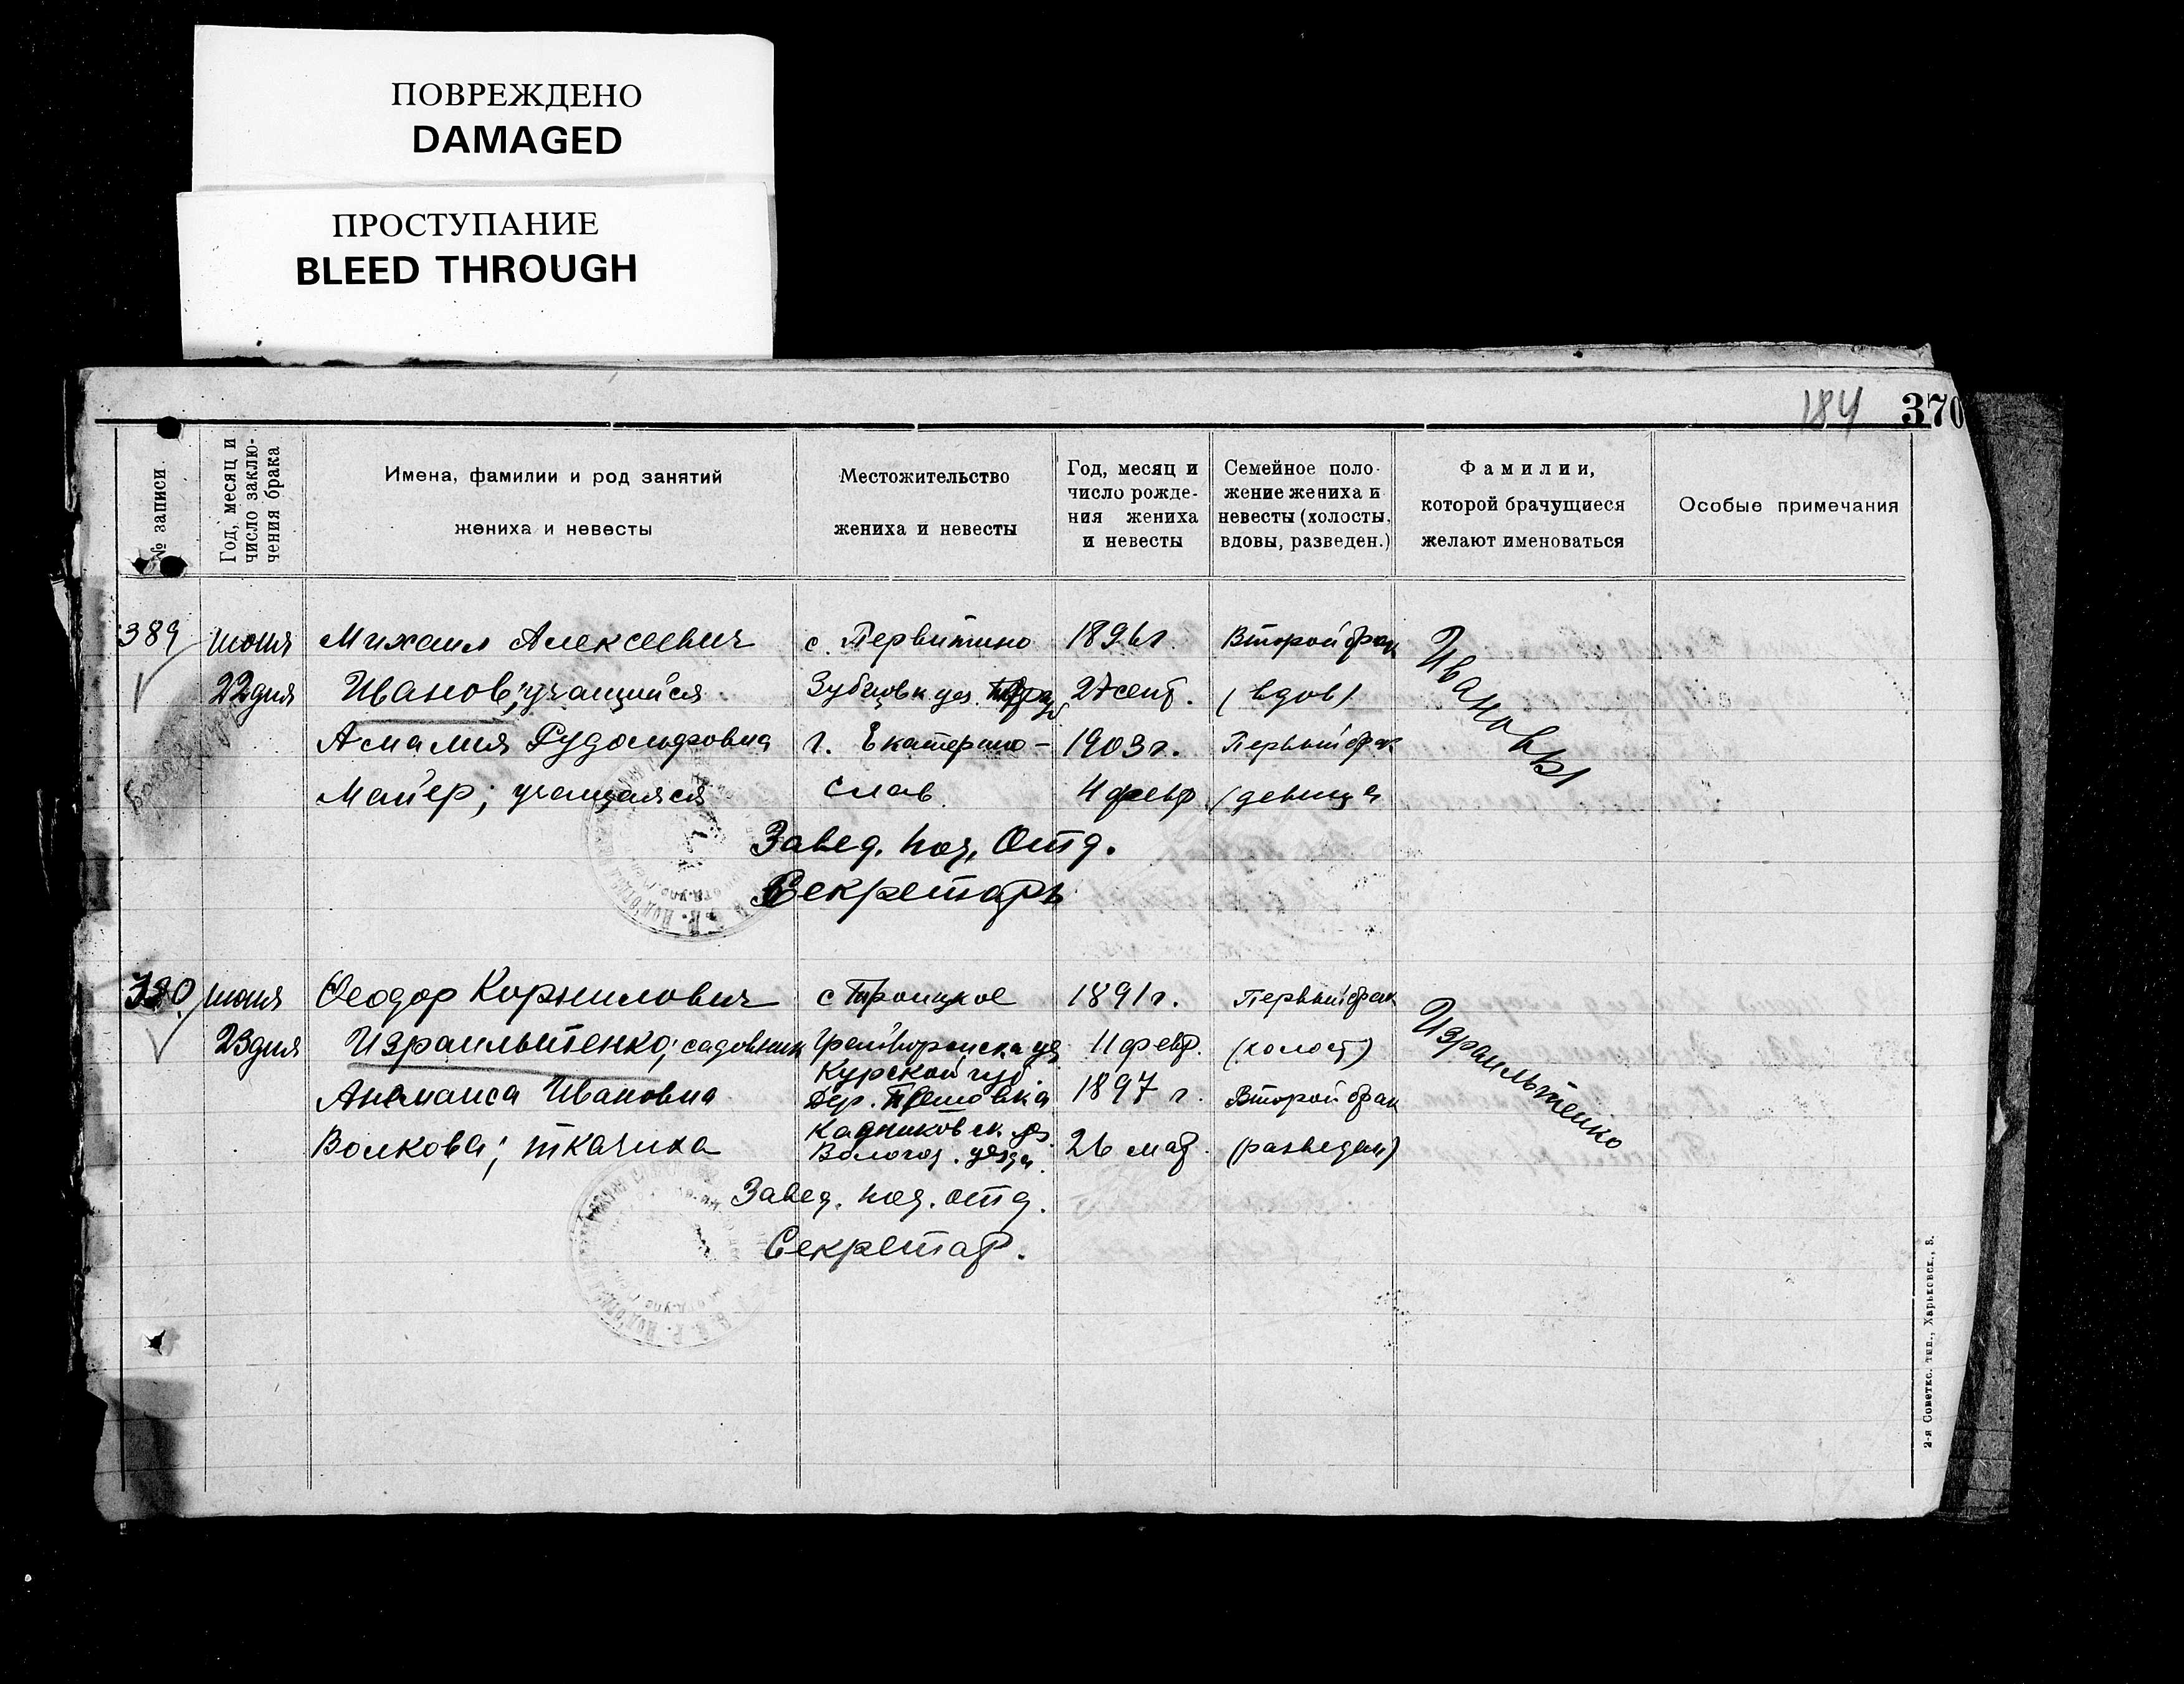 ПОВРЕЖДЕНО
DAMAGED
ПРОСТУПАНИЕ
BLEED THROUGH
184 370
№ записи
Год, месяц и
число заклю-
чения брака
Имена, фамилии и род занятий
жениха и невесты
Местожительство
жениха и невесты
Год, месяц и
число рожде-
ния жениха
и невесты
Семейное поло-
жение жениха и
невесты (холосты,
вдовы, разведен.)
Фамилии,
которой брачущиеся
желают именоваться
Особые примечания
389 июня Михаил Алексеевич с. Первитино 1896г. Второй брак
22 дня Иванов; учащийся Зубцовк уез. 27 сент. (вдов)
Ивановы
Амалия Рудольфовна г. Екатерино- 1903г. Первый брак
Майер; учащаяся слав 4 февр. (девица
Завед. под. Отд.
Секретарь
390 июня Феодор Корнилович с Троицкое 1891г. Первый брак
23 дня Израильтенко; садовник 11 февр. (холост)
Израильтенко
Курской губ.
Ивановна дер. 1897 г. Второй брак
Кадниковск. уез.
Волкова; ткачиха Волог. уезда. 26 мар. (разведен)
Завед. под. отд.
Секретар.
2-я Советск. тип., Харьковск., 8.